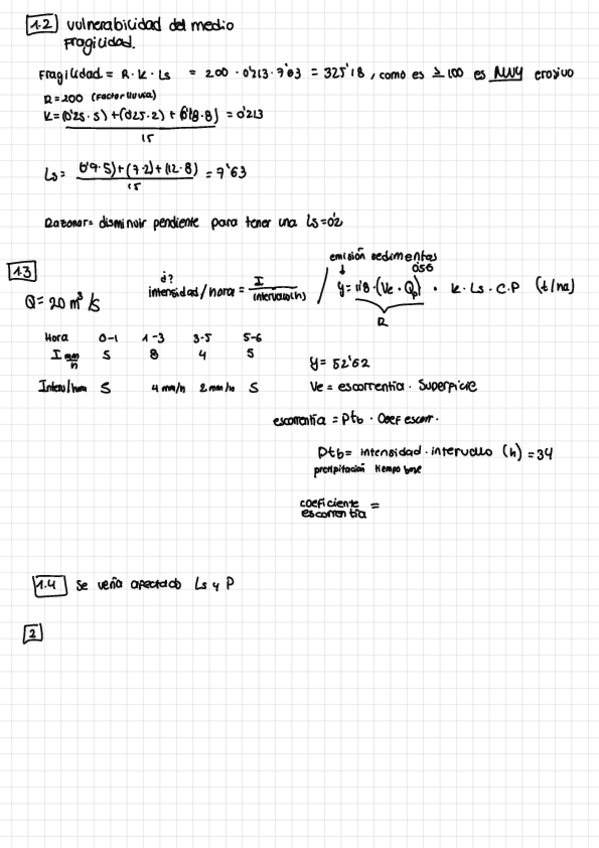 1.2 vulnerabilidad del medio
Fragilidad.
Fragilidad = R · K · Ls = 200 · 0'213 · 7'63 = 325'18, como es ≥ 100 es MUY erosivo
R = 200 (Factor lluvia)
K = (0'25 · 5) + (0'25 · 2) + (0'18 · 8) = 0'213
15
Ls = (0'9 · 5) + (7 · 2) + (12 · 8) = 7'63
15
Razonar = disminuir pendiente para tener una Ls = 0'2
1.3
emisión sedimentos
Q = 20 m³/s
¿?
intensidad/hora = I / intervalo(h) / y = 11'8 · (Ve · Qp)^0'56 · K · Ls · C · P (t/ha)
R
Hora 0-1 1-3 3-5 5-6
I mm/h 5 8 4 5
Intens/hora 5 4 mm/h 2 mm/h 5
y = 52'62
Ve = escorrentia · Superficie
escorrentia = Ptb · Coef escorr.
Ptb = intensidad · intervalo (h) = 34
precipitación tiempo base
coeficiente escorrentia =
1.4 Se vería afectado Ls y P
2